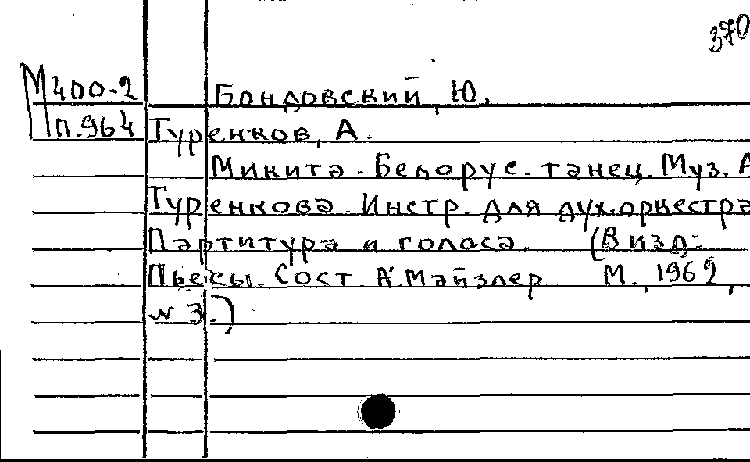 370
М400-2
Бондовский, Ю.
П.964 Туренков, А.
Микита. Белорус. танец. Муз. А
Туренкова. Инстр. для дух.оркестра
Партитура и голоса. (В изд:
Пьесы. Сост. А.Майзлер М., 1962,
№ 3.)